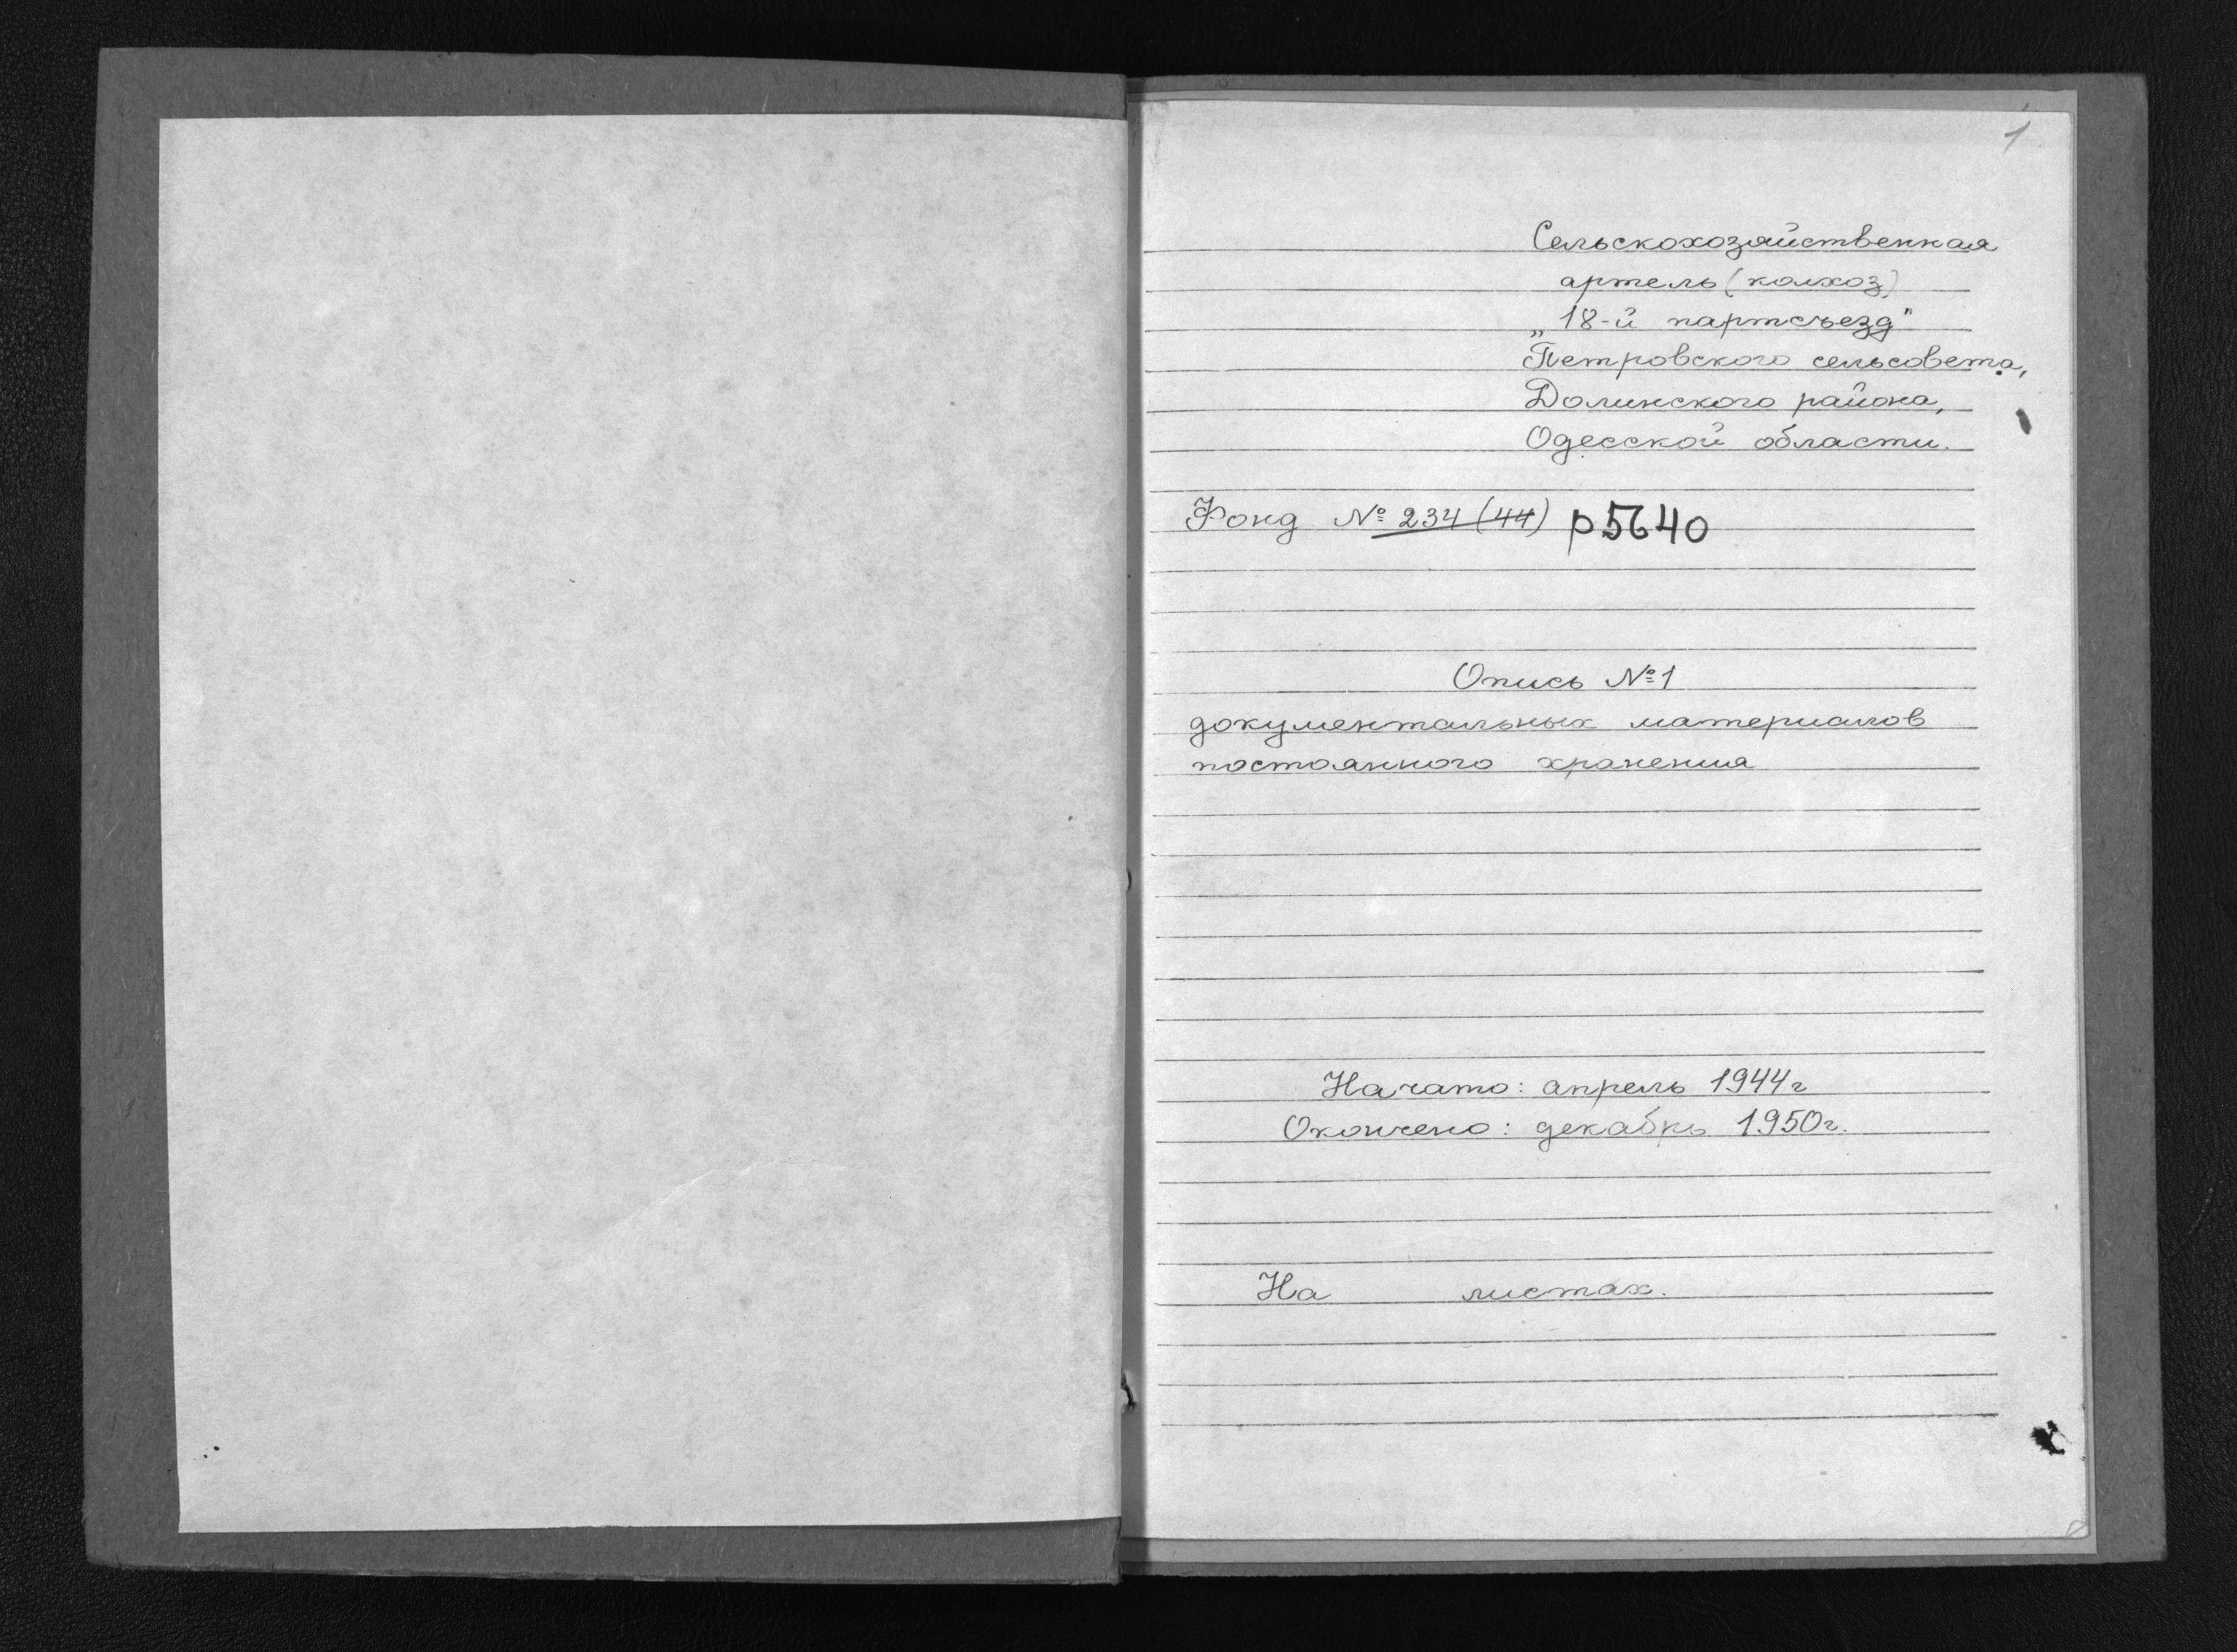 1
Сельскохозяйственная
артель (колхоз)
„18-й партсъезд"
Петровского сельсовета,
Долинского района,
Одесской области.
Фонд № 234 (44) р5640
Опись №1
документальных материалов
постоянного хранения
Начато: апрель 1944г
Окончено: декабрь 1950г.
На листах.